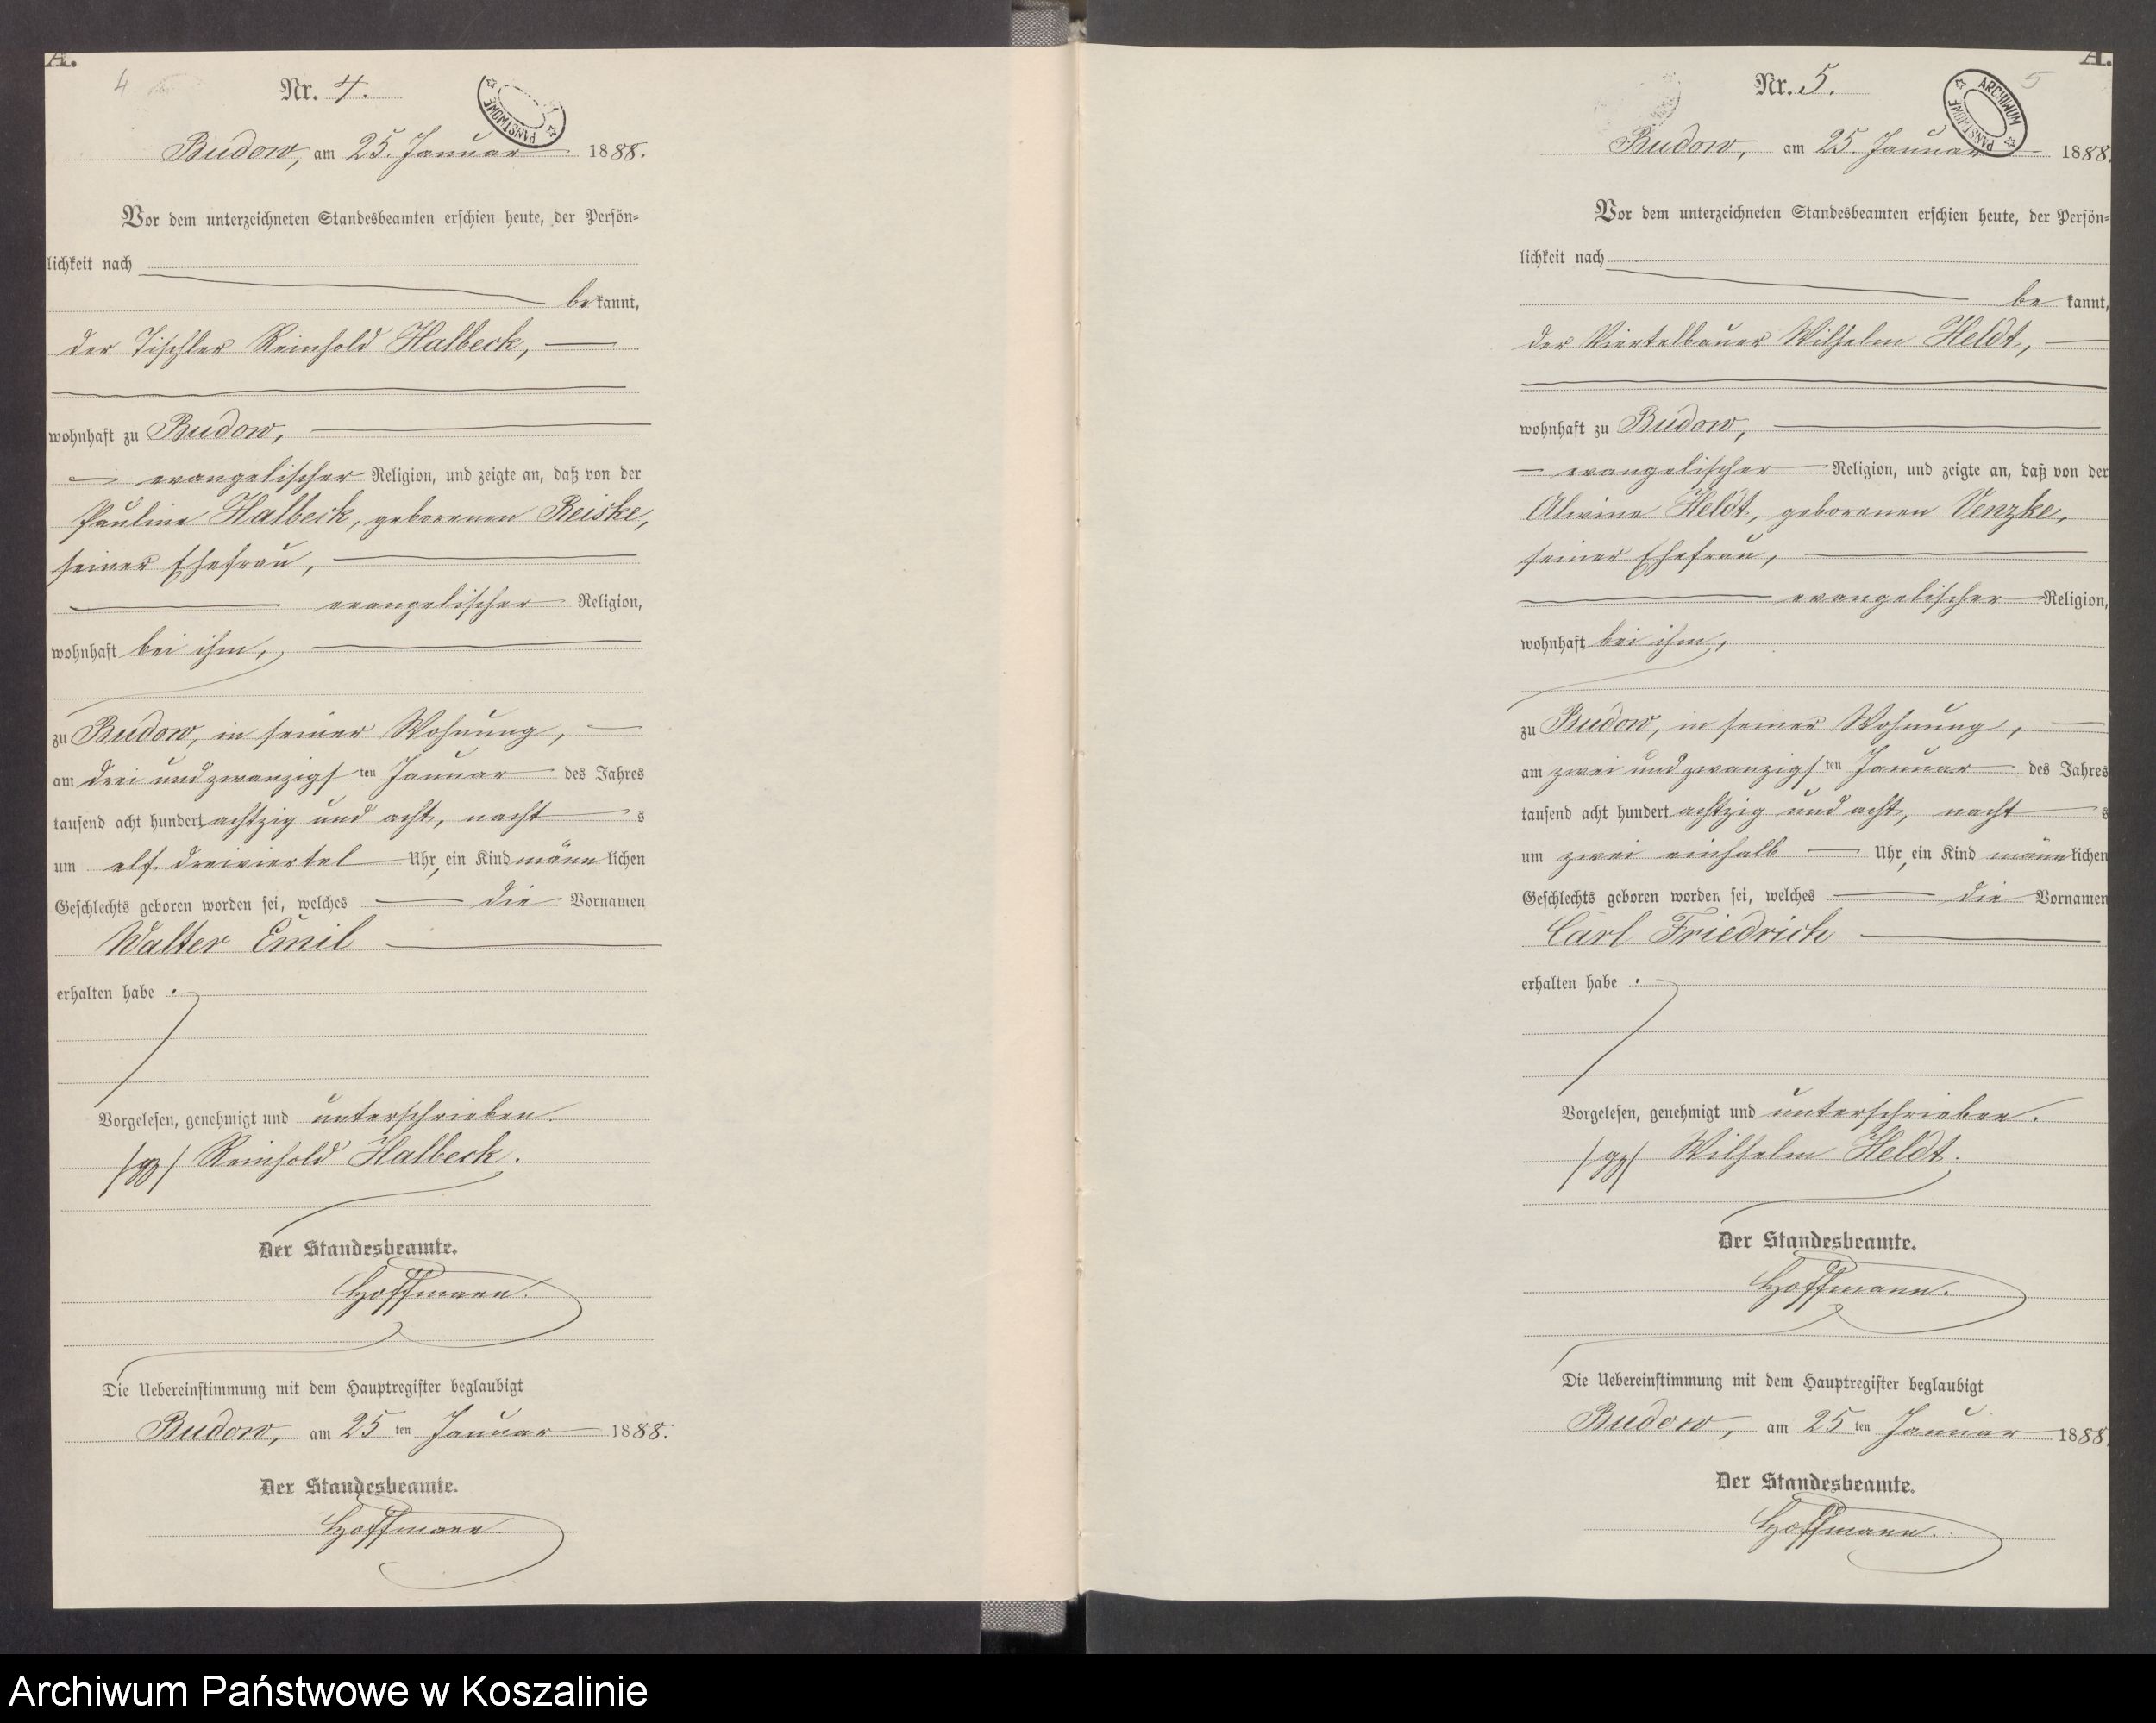 A.
4
Nr. 4.
PAŃSTWOWE
Budow, am 25. Januar 1888.
Vor dem unterzeichneten Standesbeamten erschien heute, der Persön=
lichkeit nach
be kannt,
der Tischler Reinhold Halbeck,
wohnhaft zu Budow,
evangelischer Religion, und zeigte an, daß von der
Pauline Halbeck, geborenen Reiske,
seiner Ehefrau,
evangelischer Religion,
wohnhaft bei ihm,
zu Budow, in seiner Wohnung,
am drei und zwanzigsten Januar des Jahres
tausend acht hundert achtzig und acht, nacht s
um elf dreiviertel Uhr, ein Kind männlichen
Geschlechts geboren worden sei, welches die Vornamen
Walter Emil
erhalten habe .
Vorgelesen, genehmigt und unterschrieben.
/gz/ Reinhold Halbeck.
Der Standesbeamte.
Hoffmann.
Die Uebereinstimmung mit dem Hauptregister beglaubigt
Budow, am 25 ten Januar 1888.
Der Standesbeamte.
Hoffmann
A.
5
Nr. 5.
ARCHIWUM PAŃSTWOWE
Budow, am 25. Januar 1888.
Vor dem unterzeichneten Standesbeamten erschien heute, der Persön=
lichkeit nach
be kannt,
der Viertelbauer Wilhelm Heldt,
wohnhaft zu Budow,
evangelischer Religion, und zeigte an, daß von der
Alwine Heldt, geborenen Venzke,
seiner Ehefrau,
evangelischer Religion,
wohnhaft bei ihm,
zu Budow, in seiner Wohnung,
am zwei und zwanzigsten Januar des Jahres
tausend acht hundert achtzig und acht, nacht s
um zwei einhalb Uhr, ein Kind männlichen
Geschlechts geboren worden sei, welches die Vornamen
Carl Friedrich
erhalten habe .
Vorgelesen, genehmigt und unterschrieben.
/gz/ Wilhelm Heldt.
Der Standesbeamte.
Hoffmann.
Die Uebereinstimmung mit dem Hauptregister beglaubigt
Budow, am 25 ten Januar 1888.
Der Standesbeamte.
Hoffmann.
Archiwum Państwowe w Koszalinie